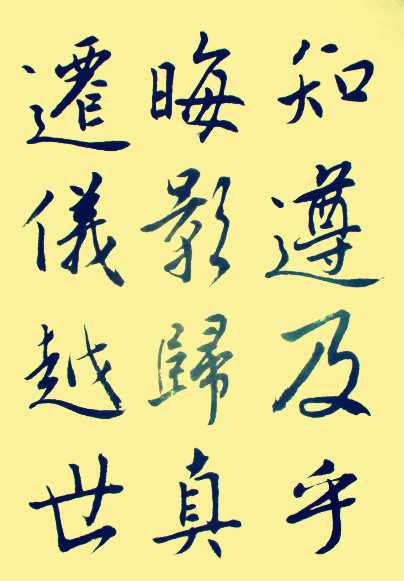 知遵及乎
晦影歸真
遷儀越世